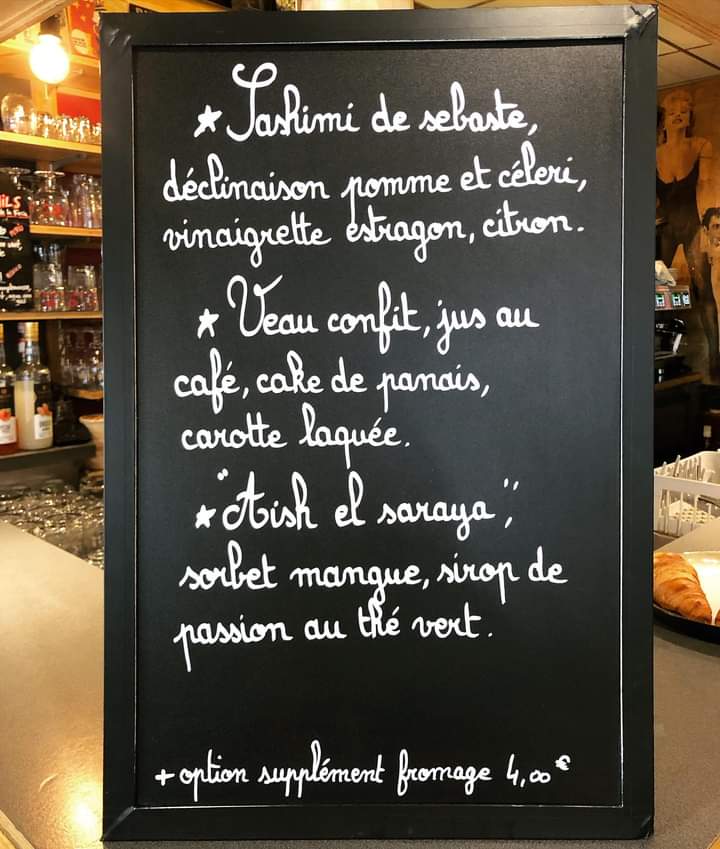 ★ Sashimi de sebaste,
déclinaison pomme et céleri,
vinaigrette estragon, citron.
★ Veau confit, jus au
café, cake de panais,
carotte laquée.
★ "Aish el saraya",
sorbet mangue, sirop de
passion au thé vert.
+ option supplément fromage 4,00€